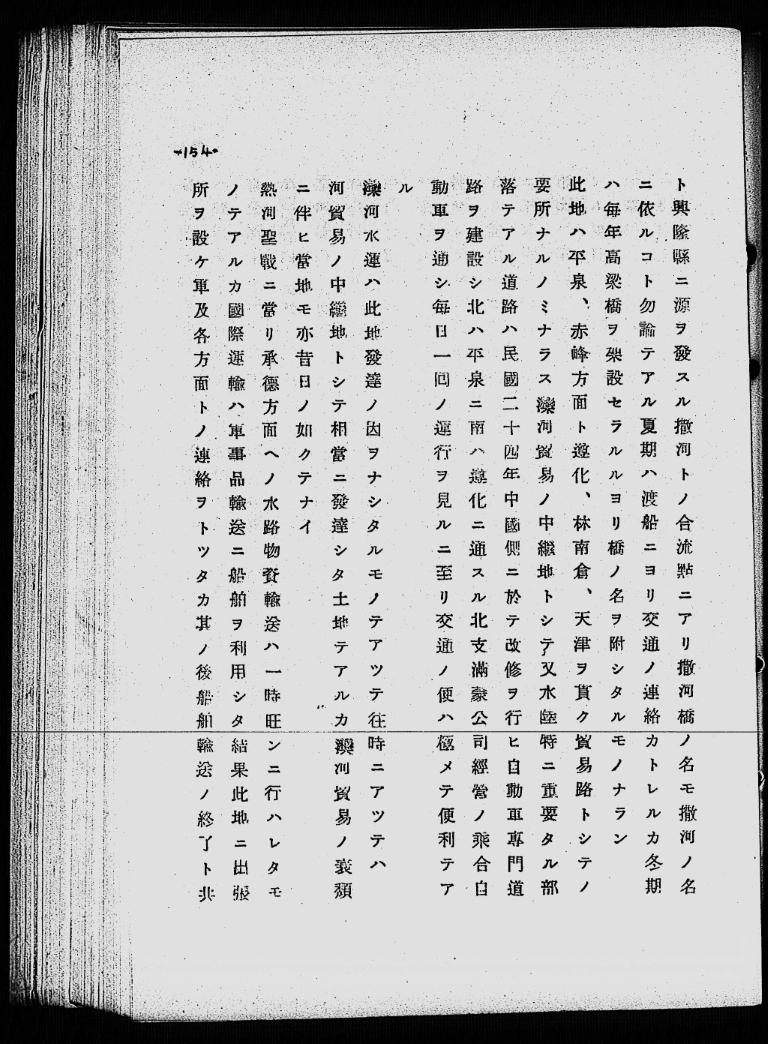 ト興隆縣ニ源ヲ發スル撒河トノ合流點ニアリ撒河橋ノ名モ撒河ノ名
ニ依ルコト勿論テアル夏期ハ渡船ニヨリ交通ノ連絡カトレルカ冬期
ハ每年高梁橋ヲ架設セラルルヨリ橋ノ名ヲ附シタルモノナラン
此地ハ平泉、赤峰方面ト遵化、林南倉、天津ヲ貫ク貿易路トシテノ
要所ナルノミナラス灤河貿易ノ中繼地トシテ又水陸特ニ重要タル部
落テアル道路ハ民國二十四年中國側ニ於テ改修ヲ行ヒ自動車專門道
路ヲ建設シ北ハ平泉ニ南ハ遵化ニ通スル北支滿蒙公司經營ノ乘合自
動車ヲ通シ每日一回ノ運行ヲ見ルニ至リ交通ノ便ハ極メテ便利テア
ル
灤河水運ハ此地發達ノ因ヲナシタルモノテアツテ往時ニアツテハ
河貿易ノ中繼地トシテ相當ニ發達シタ土地テアルカ灤河貿易ノ衰頽
ニ伴ヒ當地モ亦昔日ノ如クテナイ
熱河聖戰ニ當リ承德方面ヘノ水路物資輸送ハ一時旺ンニ行ハレタモ
ノテアルカ國際運輸ハ軍事品輸送ニ船舶ヲ利用シタ結果此地ニ出張
所ヲ設ケ軍及各方面トノ連絡ヲトツタカ其ノ後船舶輸送ノ終了ト共
-154-